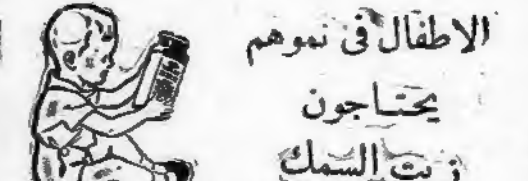 الاطفال فى نموهم
يحتاجون
زيت السمك